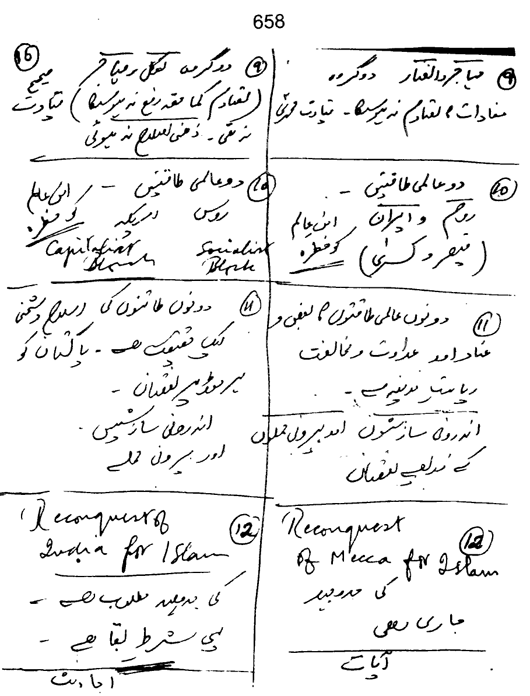 658
⑨ مہاجر و انصار دو گروہ
مفادات کا تصادم نہ ہو سکا۔ قیادت محمدیؐ
⑩ دو عالمی طاقتیں -
روم و ایران امن عالم
(قیصر و کسریٰ) کو خطرہ
⑪ دونوں عالمی طاقتوں کا بغض و
عناد اور عداوت و مخالفت
ریاست مدینہ سے -
اندرونی سازشوں اور بیرونی حملوں
کے ذریعے نقصان
⑫ Reconquest
of Mecca for Islam
کی جدوجہد
جاری رہی
آیات
⑯
⑨ دو گروہ لوکل و مہاجر صحیح
(تصادم کما حقہ رفع نہ ہو سکا) قیادت
نہ تھی۔ ذہنی اصلاح نہ ہوئی
⑩ دو عالمی طاقتیں - امن عالم
روس امریکہ کو خطرہ
Capitalist Socialist
Block Block
⑪ دونوں طاقتوں کی اسلام دشمنی
ایک حقیقت ہے - پاکستان کو
ہر موڑ پر نقصان -
اندرونی سازشیں -
اور بیرونی حملے
⑫ Reconquest of
India for Islam
کی جدوجہد مطلوب ہے -
یہی شرط بقا ہے -
احادیث